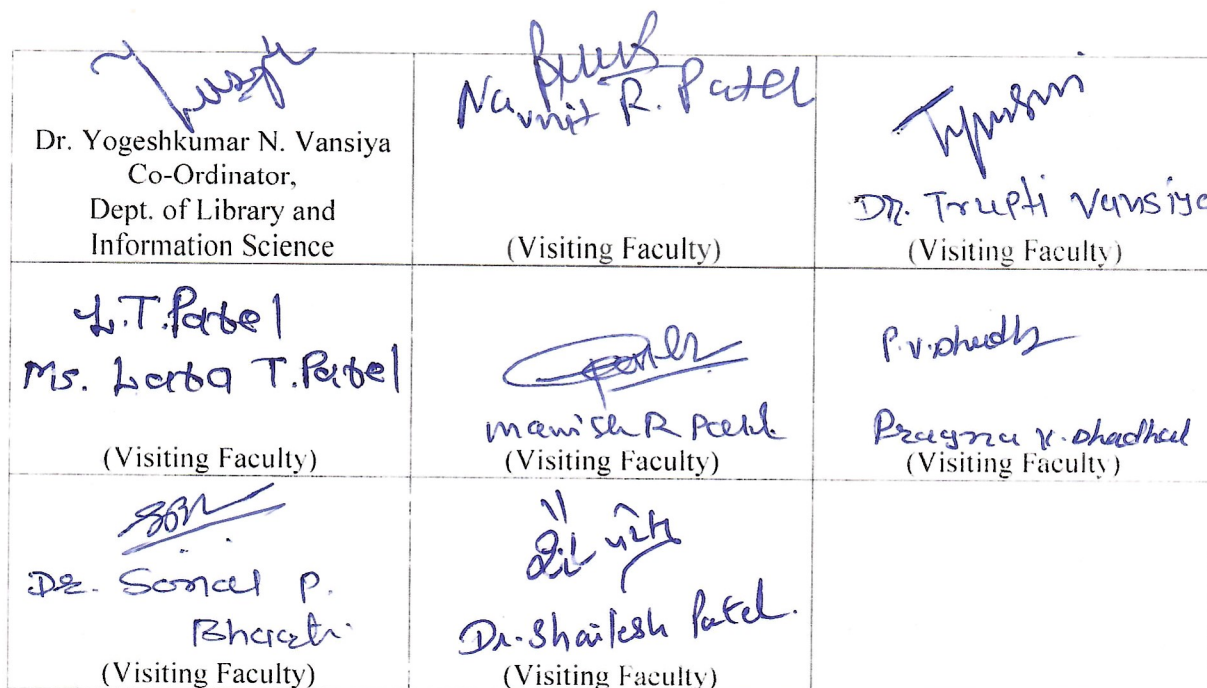 Dr. Yogeshkumar N. Vansiya
Co-Ordinator,
Dept. of Library and
Information Science
Navnit R. Patel
(Visiting Faculty)
Dr. Trupti Vansiya
(Visiting Faculty)
L.T.Patel
Ms. Lata T.Patel
(Visiting Faculty)
Manish R Patel
(Visiting Faculty)
P.V.
Pragna V. Dhadhal
(Visiting Faculty)
Dr. Sonal P.
(Visiting Faculty)
Dr. Shailesh Patel.
(Visiting Faculty)